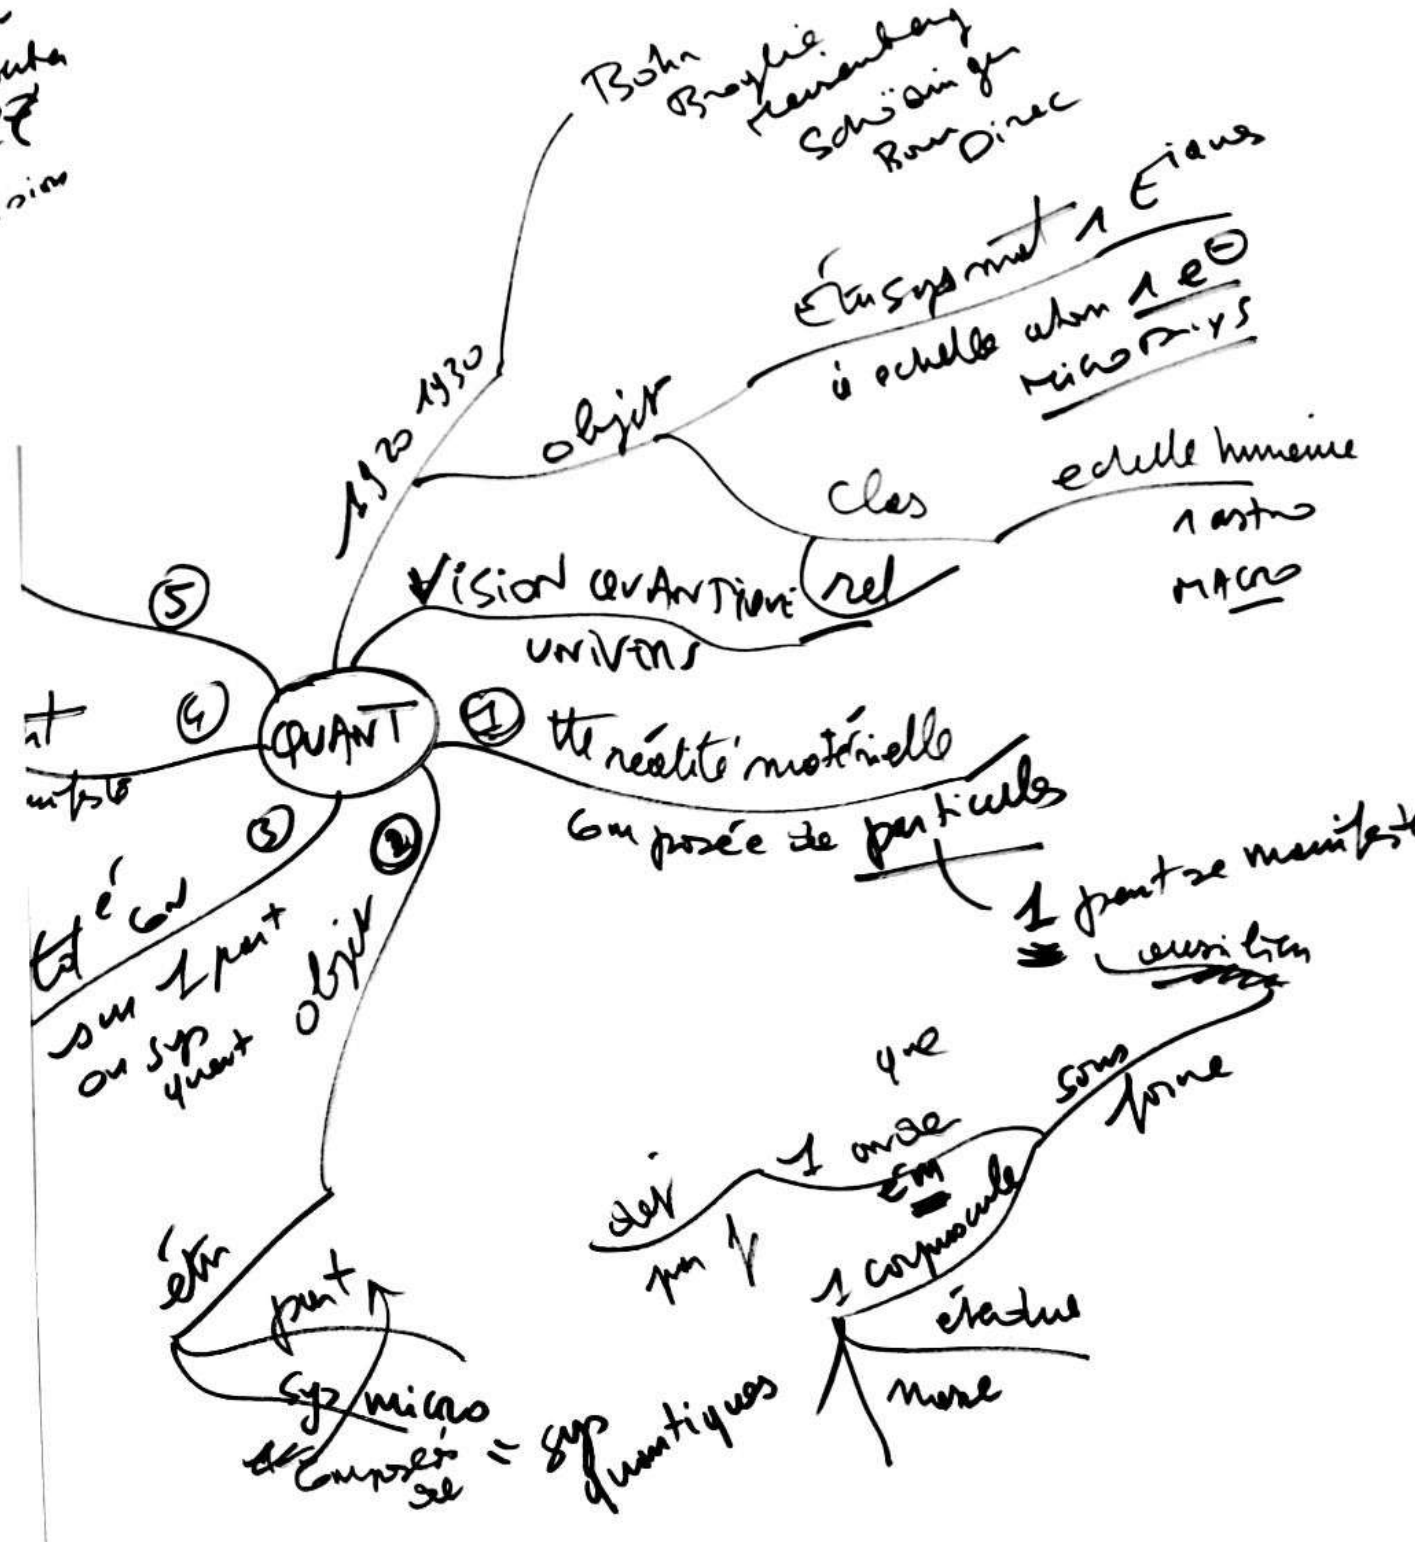 Bohr
Broglie
Heisenberg
Schrödinger
Born Dirac
1920 1930
objet
Étu sys mat 1 E
à echelle atom 1 e⊖
MICRO
Clas
rel
echelle humaine
1 astro
MACRO
VISION QUANTIQUE
UNIVERS
QUANT
① tte réalité matérielle
composée de particules
1 part se manifeste
aussi bien
sous
forme
que
1 onde
EM
det
par f
1 corpuscule
étendue
masse
② objet
étu
part
sys micro
composés
de
= sys
quantiques
③
tot é con
sur 1 part
ou sys
quant
④
nt
⑤